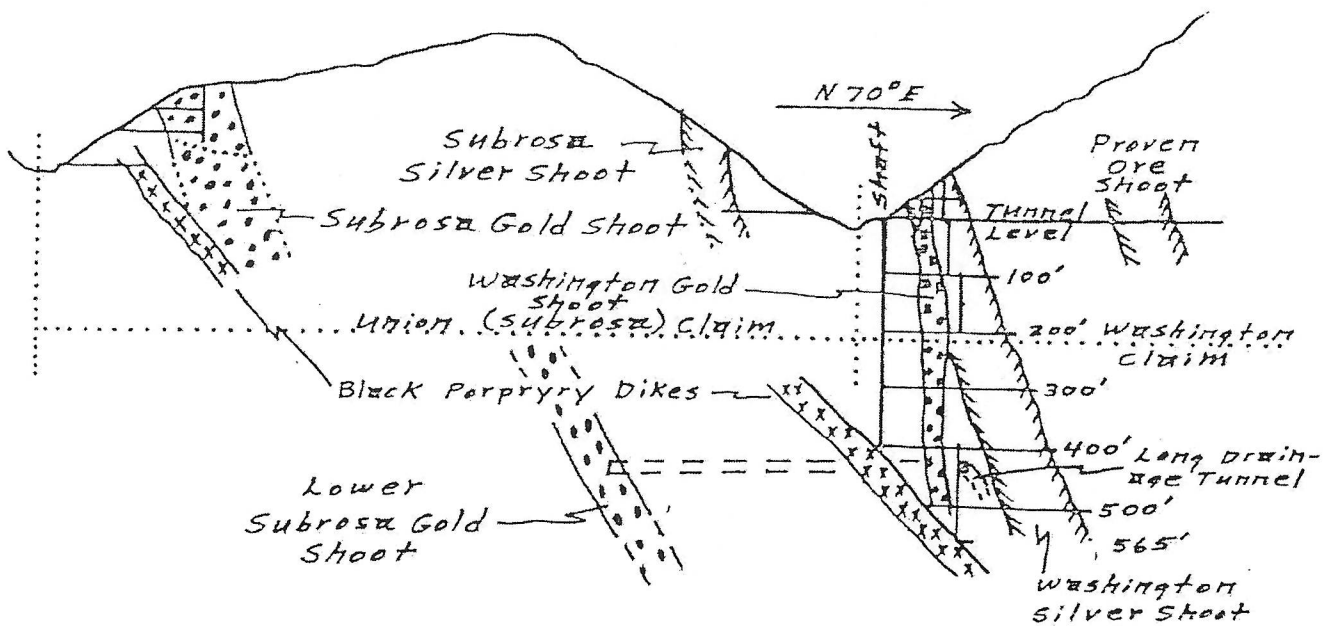 N 70°E
Subrosa
Silver Shoot
Shaft
Proven
Ore
Shoot
Subrosa Gold Shoot
Tunnel
Level
Washington Gold
Shoot
100'
Union (Subrosa) Claim
200'
Washington
Claim
Black Porpryry Dikes
300'
400'
Long Drain-
age Tunnel
Lower
Subrosa Gold
Shoot
500'
565'
Washington
Silver Shoot